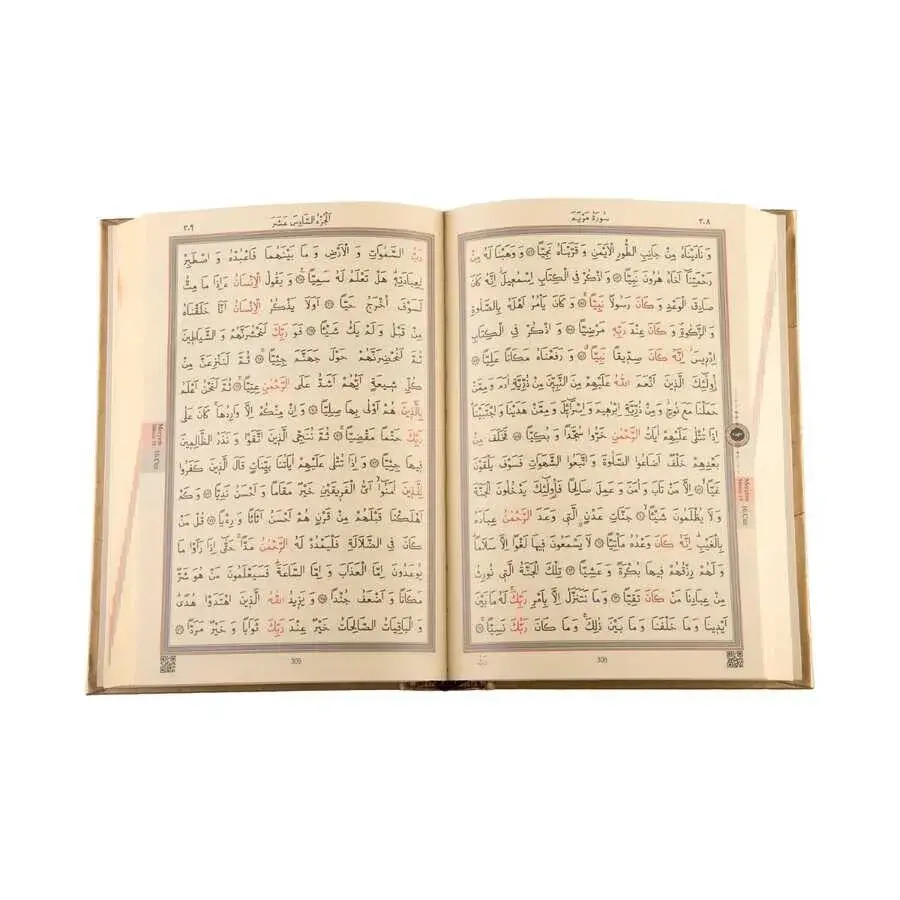 سُورَةُ مَرْيَمَ ٣٠٨
وَنَادَيْنَاهُ مِنْ جَانِبِ الطُّورِ الْاَيْمَنِ وَقَرَّبْنَاهُ نَجِيًّا وَوَهَبْنَا لَهُ مِنْ
رَحْمَتِنَا اَخَاهُ هٰرُونَ نَبِيًّا وَاذْكُرْ فِي الْكِتَابِ اِسْمٰعِيلَ اِنَّهُ كَانَ
صَادِقَ الْوَعْدِ وَكَانَ رَسُولًا نَبِيًّا وَكَانَ يَأْمُرُ اَهْلَهُ بِالصَّلٰوةِ
وَالزَّكٰوةِ وَكَانَ عِنْدَ رَبِّهِ مَرْضِيًّا وَاذْكُرْ فِي الْكِتَابِ
اِدْرِيسَ اِنَّهُ كَانَ صِدِّيقًا نَبِيًّا وَرَفَعْنَاهُ مَكَانًا عَلِيًّا
اُولٰٓئِكَ الَّذِينَ اَنْعَمَ اللّٰهُ عَلَيْهِمْ مِنَ النَّبِيِّنَ مِنْ ذُرِّيَّةِ اٰدَمَ وَمِمَّنْ
حَمَلْنَا مَعَ نُوحٍ وَمِنْ ذُرِّيَّةِ اِبْرٰهِيمَ وَاِسْرَٓائِلَ وَمِمَّنْ هَدَيْنَا وَاجْتَبَيْنَا
اِذَا تُتْلٰى عَلَيْهِمْ اٰيَاتُ الرَّحْمٰنِ خَرُّوا سُجَّدًا وَبُكِيًّا فَخَلَفَ مِنْ
بَعْدِهِمْ خَلْفٌ اَضَاعُوا الصَّلٰوةَ وَاتَّبَعُوا الشَّهَوَاتِ فَسَوْفَ يَلْقَوْنَ
غَيًّا اِلَّا مَنْ تَابَ وَاٰمَنَ وَعَمِلَ صَالِحًا فَاُولٰٓئِكَ يَدْخُلُونَ الْجَنَّةَ
وَلَا يُظْلَمُونَ شَيْـًٔا جَنَّاتِ عَدْنٍ الَّتِي وَعَدَ الرَّحْمٰنُ عِبَادَهُ
بِالْغَيْبِ اِنَّهُ كَانَ وَعْدُهُ مَأْتِيًّا لَا يَسْمَعُونَ فِيهَا لَغْوًا اِلَّا سَلَامًا
وَلَهُمْ رِزْقُهُمْ فِيهَا بُكْرَةً وَعَشِيًّا تِلْكَ الْجَنَّةُ الَّتِي نُورِثُ
مِنْ عِبَادِنَا مَنْ كَانَ تَقِيًّا وَمَا نَتَنَزَّلُ اِلَّا بِاَمْرِ رَبِّكَ لَهُ مَا بَيْنَ
اَيْدِينَا وَمَا خَلْفَنَا وَمَا بَيْنَ ذٰلِكَ وَمَا كَانَ رَبُّكَ نَسِيًّا
رَبُّ
Meryem
16.Cüz
اَلْجُزْءُ السَّادِسَ عَشَرَ ٣٠٩
رَبُّ السَّمٰوَاتِ وَالْاَرْضِ وَمَا بَيْنَهُمَا فَاعْبُدْهُ وَاصْطَبِرْ
لِعِبَادَتِهِ هَلْ تَعْلَمُ لَهُ سَمِيًّا وَيَقُولُ الْاِنْسَانُ ءَاِذَا مَا مِتُّ
لَسَوْفَ اُخْرَجُ حَيًّا اَوَلَا يَذْكُرُ الْاِنْسَانُ اَنَّا خَلَقْنَاهُ
مِنْ قَبْلُ وَلَمْ يَكُ شَيْـًٔا فَوَرَبِّكَ لَنَحْشُرَنَّهُمْ وَالشَّيَاطِينَ
ثُمَّ لَنُحْضِرَنَّهُمْ حَوْلَ جَهَنَّمَ جِثِيًّا ثُمَّ لَنَنْزِعَنَّ مِنْ
كُلِّ شِيعَةٍ اَيُّهُمْ اَشَدُّ عَلَى الرَّحْمٰنِ عِتِيًّا ثُمَّ لَنَحْنُ اَعْلَمُ
بِالَّذِينَ هُمْ اَوْلٰى بِهَا صِلِيًّا وَاِنْ مِنْكُمْ اِلَّا وَارِدُهَا كَانَ عَلٰى
رَبِّكَ حَتْمًا مَقْضِيًّا ثُمَّ نُنَجِّي الَّذِينَ اتَّقَوْا وَنَذَرُ الظَّالِمِينَ
فِيهَا جِثِيًّا وَاِذَا تُتْلٰى عَلَيْهِمْ اٰيَاتُنَا بَيِّنَاتٍ قَالَ الَّذِينَ كَفَرُوا
لِلَّذِينَ اٰمَنُوا اَيُّ الْفَرِيقَيْنِ خَيْرٌ مَقَامًا وَاَحْسَنُ نَدِيًّا وَكَمْ
اَهْلَكْنَا قَبْلَهُمْ مِنْ قَرْنٍ هُمْ اَحْسَنُ اَثَاثًا وَرِءْيًا قُلْ مَنْ
كَانَ فِي الضَّلَالَةِ فَلْيَمْدُدْ لَهُ الرَّحْمٰنُ مَدًّا حَتّٰى اِذَا رَاَوْا مَا
يُوعَدُونَ اِمَّا الْعَذَابَ وَاِمَّا السَّاعَةَ فَسَيَعْلَمُونَ مَنْ هُوَ شَرٌّ
مَكَانًا وَاَضْعَفُ جُنْدًا وَيَزِيدُ اللّٰهُ الَّذِينَ اهْتَدَوْا هُدًى
وَالْبَاقِيَاتُ الصَّالِحَاتُ خَيْرٌ عِنْدَ رَبِّكَ ثَوَابًا وَخَيْرٌ مَرَدًّا
Meryem
16.Cüz